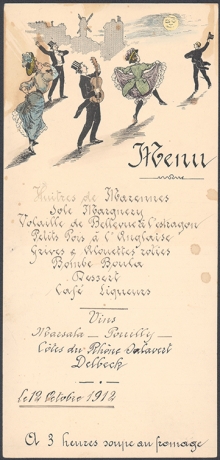 Menu
Huîtres de Marennes
Sole Marguery
Volaille de Bellevue à l'estragon
Petits Pois à l'Anglaise
Grives & Alouettes rôties
Bombe Boula
Dessert
Café Liqueurs
Vins
Marsala _ Pouilly _
Côtes du Rhône
Delbeck
le 12 Octobre 1912
A 3 heures soupe au fromage